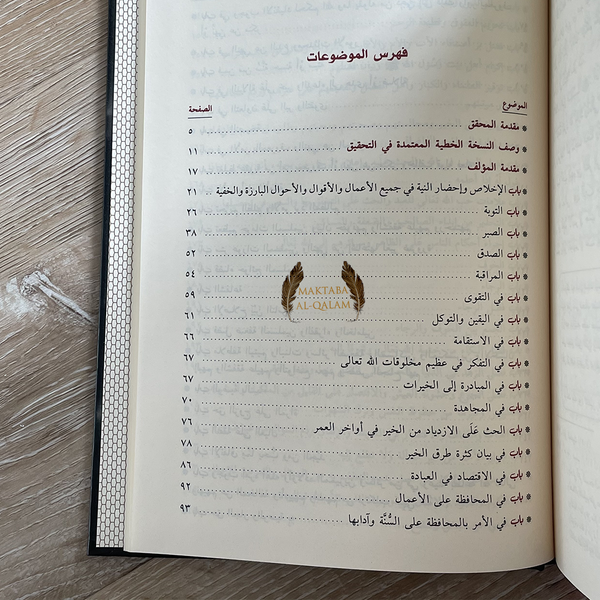 فهرس الموضوعات
الموضوع الصفحة
* مقدمة المحقق ٥
* وصف النسخة الخطية المعتمدة في التحقيق ١١
* مقدمة المؤلف ١٧
* باب الإخلاص وإحضار النية في جميع الأعمال والأقوال والأحوال البارزة والخفية ٢١
* باب التوبة ٢٦
* باب الصبر ٣٨
* باب الصدق ٥٢
* باب المراقبة ٥٤
* باب في التقوى ٥٩
* باب في اليقين والتوكل ٦١
* باب في الاستقامة ٦٦
* باب في التفكر في عظيم مخلوقات الله تعالى ٦٧
* باب في المبادرة إلى الخيرات ٦٧
* باب في المجاهدة ٧٠
* باب الحث عَلَى الازدياد من الخير في أواخر العمر ٧٦
* باب في بيان كثرة طرق الخير ٧٨
* باب في الاقتصاد في العبادة ٨٦
* باب في المحافظة على الأعمال ٩٢
* باب في الأمر بالمحافظة على السُّنَّة وآدابها ٩٣
MAKTABA
AL-QALAM